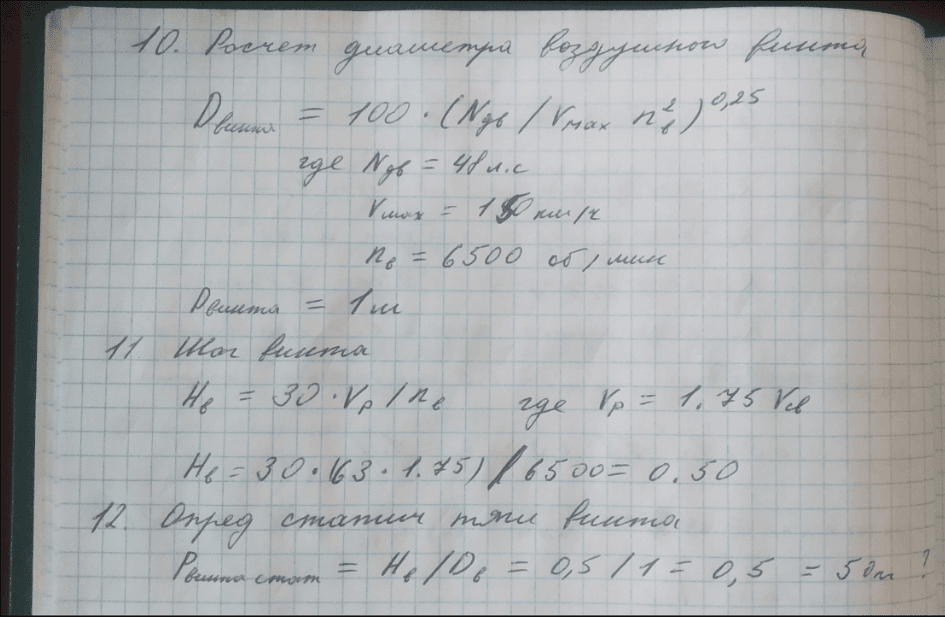 10. Расчет диаметра воздушного винта
Dвинта = 100 · (Nдв / Vмах nв²)^0,25
где Nдв = 48 л.с
Vмах = 150 км/ч
nв = 6500 об/мин
Dвинта = 1м
11 Шаг винта
Hв = 30 · Vр / nв где Vр = 1.75 Vсв
Hв = 30 · (63 · 1.75) / 6500 = 0.50
12. Опред статич тяги винта
Pвинта стат = Hв / Dв = 0,5 / 1 = 0,5 =
?